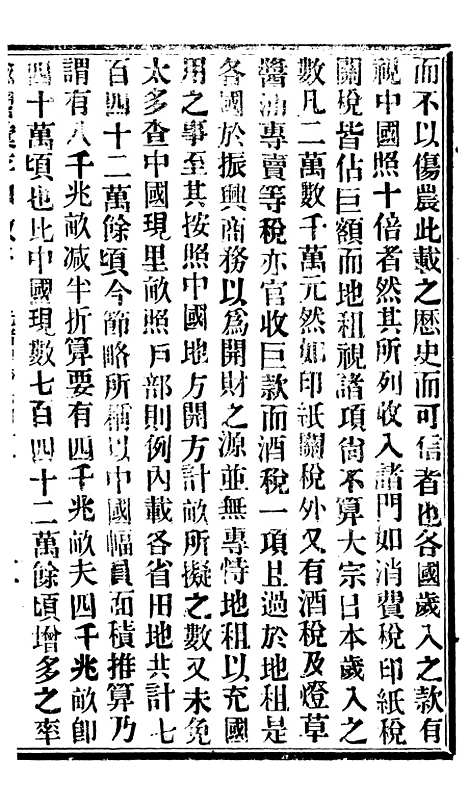 而不以傷農此載之歷史而可信者也各國歲入之款有
視中國照十倍者然其所列收入諸門如消費稅印紙稅
關稅皆佔巨額而地租視諸項尙不算大宗日本歲入之
數凡二萬數千萬元然如印紙關稅外又有酒稅及燈草
醬油專賣等稅亦官收巨款而酒稅一項且過於地租是
各國於振興商務以爲開財之源並無專恃地租以充國
用之事至其按照中國地方開方計畝所擬之數又未免
太多查中國現里畝照戶部則例內載各省田地共計七
百四十二萬餘頃今節略所稱以中國幅員面積推算乃
謂有八千兆畝減半折算要有四千兆畝夫四千兆畝卽
四十萬頃也比中國現數七百四十二萬餘頃增多之率